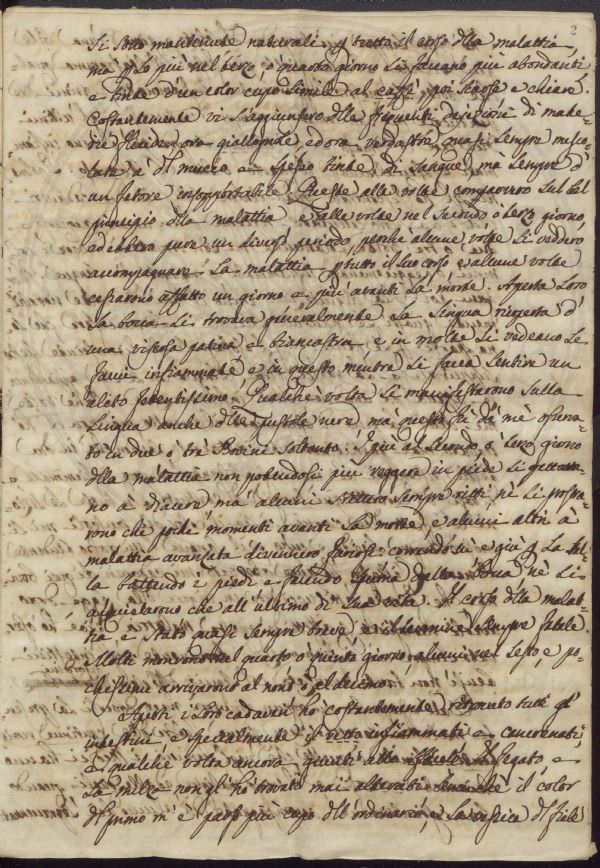 2
si sono mantenute naturali p tutto il corso dlla malattia
ma p lo più nel terzo, o quarto giorno si faceano più abondanti
e tinte d'un color cupo simile al caffè, poi scarse e chiare.
Costantemente vi s'aggiunsero dlle frequenti dejezioni di mate-
rie fluide, ora giallognole, ed ora verdastre, quasi sempre misco-
late a dl mucco e spesso tinte di sangue, ma sempre d'
un fetore insopportabile. Queste alle volte comparvero sul bel
principio dlla malattia e alle volte nel secondo o terzo giorno,
ed ebbero pure un diverso periodo, perchè alcune volte si veddero
accompagnare la malattia p tutto il suo corso e alcune volte
cessarono affatto un giorno e più avanti la morte. Aperta loro
la bocca si trovava generalmente la lingua ricoperta d'
una viscosa patina e biancastra, e in molte si vedeano le
fauci infiammate e in questo mentre si facea sentire un
alato fetentissimo. Qualche volta si manifestarono sulla
lingua anche dlle pustole nere, ma questo fu da mè osserva-
to in due o trè Bovini soltanto. I più al secondo, o terzo giorno
dlla malattia non potendosi più reggere in piede si gettava-
no a giacere, ma alcuni stettero sempre ritti nè si prostra-
rono che pochi momenti avanti la morte, e alcuni altri à
malattia avanzata divennero furiosi correndo sù e giù p la stal-
la battendo i piedi e facendo spuma dalla bocca nè si
acquietarono che all'ultimo di sua vita. Il corso dlla malat-
tia è stato quasi sempre breve, e il termine sempre fatale.
Molti morirono nel quarto o quinto giorno, alcuni nel sesto, e po-
chissimi arrivarono al nono o al decimo.
Aperti i loro cadaveri ho costantemente rinvenuto tutti gl'
intestini e specialmente il retto infiammati e cancrenati,
e qualche volta ancora Il fegato, e
la milza non gl' hò trovati mai alterati il color
dl primo m'è parso più cupo dll' ordinario, e la vessica dl fiele